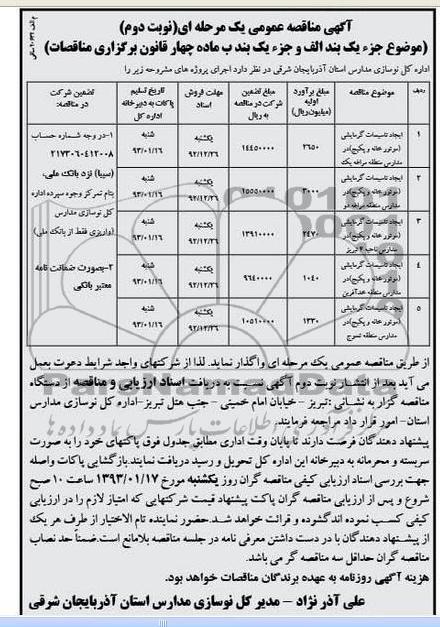 آگهی مناقصه عمومی یک مرحله ای(نوبت دوم)
(موضوع جزء یک بند الف و جزء یک بند ب ماده چهار قانون برگزاری مناقصات)
اداره کل نوسازی مدارس استان آذربایجان شرقی در نظر دارد اجرای پروژه های مشروحه زیر را
ردیف
موضوع مناقصه
مبلغ برآورد اولیه (میلیون ریال)
مبلغ تضمین شرکت در مناقصه به ریال
مهلت فروش اسناد
تاریخ تسلیم پاکات به دبیرخانه اداره کل
تضمین شرکت در مناقصه:
۱ ایجاد تاسیسات گرمایشی (موتورخانه و پکیج)در مدارس منطقه مراغه یک ۲۶۵۰ ۱۴۴۵۰۰۰۰ یکشنبه ۹۲/۱۲/۲۶ شنبه ۹۳/۰۱/۱۶
۲ ایجاد تاسیسات گرمایشی (موتورخانه و پکیج)در مدارس منطقه مراغه دو ۳۰۰۰ ۱۵۵۵۰۰۰۰ یکشنبه ۹۲/۱۲/۲۶ شنبه ۹۳/۰۱/۱۶
۳ ایجاد تاسیسات گرمایشی (موتورخانه و پکیج)در مدارس ناحیه ۲ تبریز ۲۴۷۰ ۱۳۹۱۰۰۰۰ یکشنبه ۹۲/۱۲/۲۶ شنبه ۹۳/۰۱/۱۶
۴ ایجاد تاسیسات گرمایشی (موتورخانه و پکیج)در مدارس منطقه خداآفرین ۱۰۴۰ ۹۶۴۰۰۰۰ یکشنبه ۹۲/۱۲/۲۶ شنبه ۹۳/۰۱/۱۶
۵ ایجاد تاسیسات گرمایشی (موتورخانه و پکیج)در مدارس منطقه تسوج ۱۳۳۰ ۱۰۵۱۰۰۰۰ یکشنبه ۹۲/۱۲/۲۶ شنبه ۹۳/۰۱/۱۶
۱-در وجه شماره حساب
۲۱۷۳۰۶۰۴۱۲۰۰۸
(سیبا) نزد بانک ملی،
بنام تمرکز وجوه سپرده اداره
کل نوسازی مدارس
(واریزی فقط از بانک ملی)
۲-بصورت ضمانت نامه
معتبر بانکی
از طریق مناقصه عمومی یک مرحله ای واگذار نماید. لذا از شرکتهای واجد شرایط دعوت بعمل
می آید بعد از انتشار نوبت دوم آگهی نسبت به دریافت اسناد ارزیابی و مناقصه از دستگاه
مناقصه گزار به نشانی :تبریز – خیابان امام خمینی – جنب هتل تبریز-اداره کل نوسازی مدارس
استان– امور قرار داد مراجعه فرمایند.
پیشنهاد دهندگان فرصت دارند تا پایان وقت اداری مطابق جدول فوق پاکتهای خود را به صورت
سربسته و محرمانه به دبیرخانه این اداره کل تحویل و رسید دریافت نمایند.بازگشایی پاکات واصله
جهت بررسی اسناد ارزیابی کیفی مناقصه گران روز یکشنبه مورخ ۱۳۹۳/۰۱/۱۷ ساعت ۱۰ صبح
شروع و پس از ارزیابی مناقصه گران پاکت پیشنهاد قیمت شرکتهایی که امتیاز لازم را در ارزیابی
کیفی کسب نموده اند گشوده و قرائت خواهد شد.حضور نماینده تام الاختیار از طرف هر یک
از پیشنهاد دهندگان با در دست داشتن معرفی نامه در جلسه مناقصه بلامانع است.ضمناً حد نصاب
مناقصه گران حداقل سه مناقصه گر می باشد.
هزینه آگهی روزنامه به عهده برندگان مناقصات خواهد بود.
علی آذر نژاد – مدیر کل نوسازی مدارس استان آذربایجان شرقی
ParsNamadData